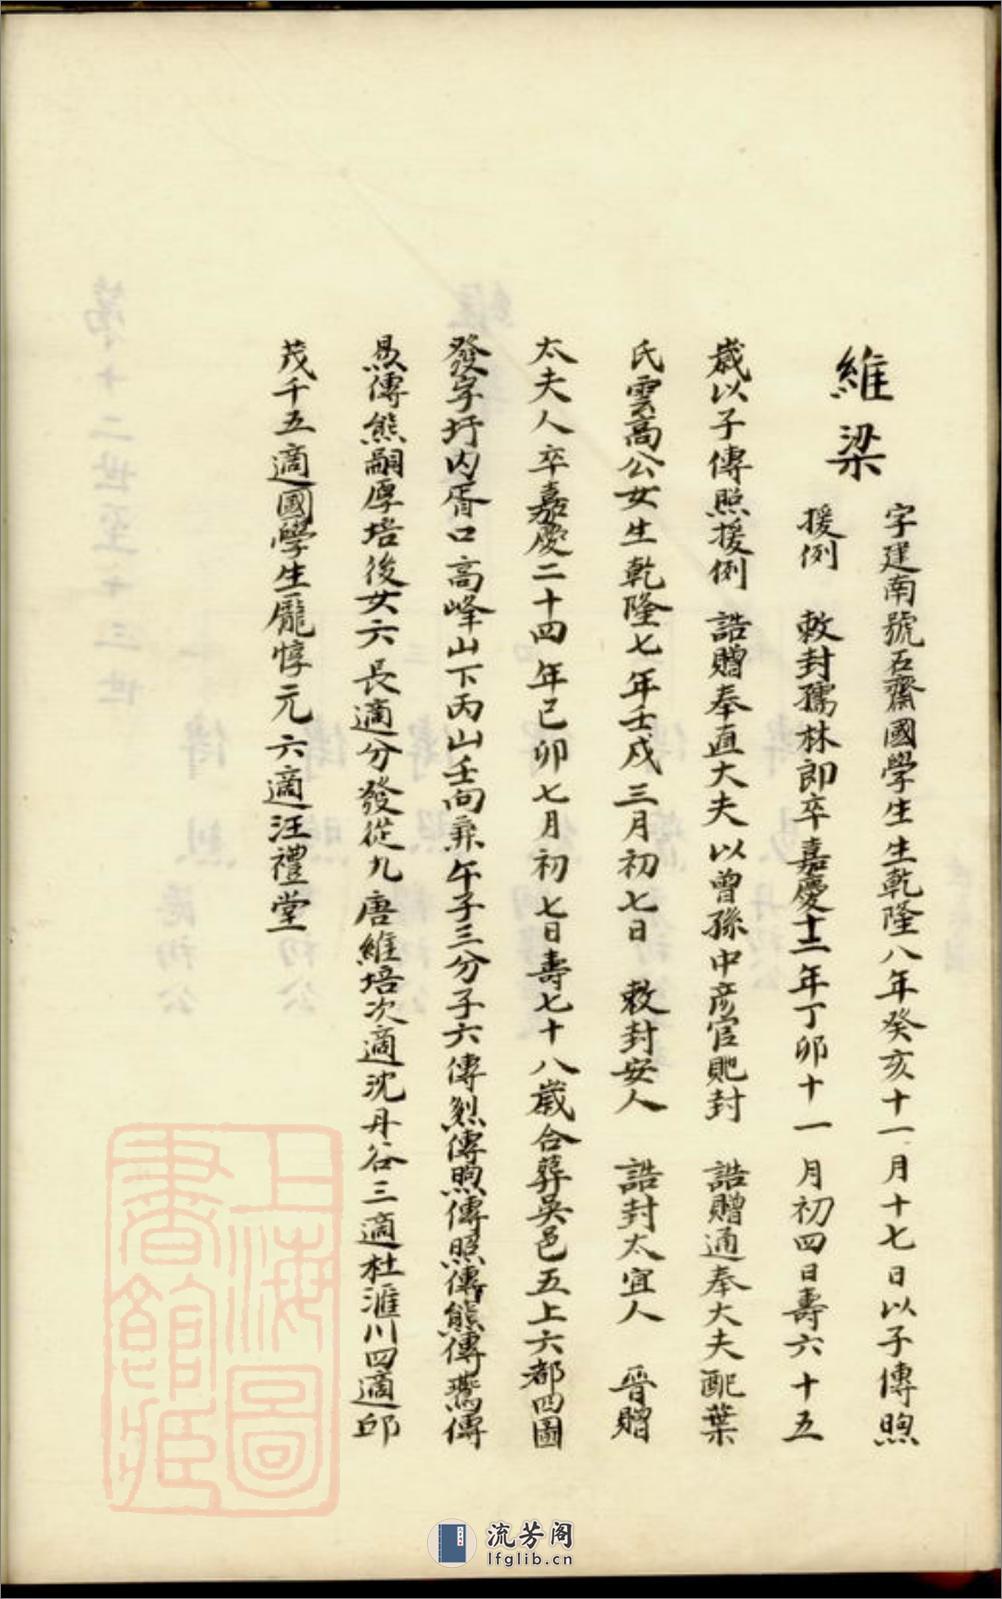 維梁
字建南號石齋國學生生乾隆八年癸亥十一月十七日以子傳煦
援例 敕封孺林郎卒嘉慶十二年丁卯十一月初四日壽六十五
歲以子傳照援例 誥贈奉直大夫以曾孫中彦官貤封 誥贈通奉大夫配葉
氏雲高公女生乾隆七年壬戌三月初七日 敕封安人 誥封太宜人 晉贈
太夫人卒嘉慶二十四年己卯七月初七日壽七十八歲合葬吳邑五上六都四圖
發字圩內胥口高峰山下丙山壬向兼午子三分子六傳烈傳煦傳照傳熊傳傳
易傳熊嗣厚培後女六長適分發從九唐維培次適沈丹谷三適杜滙川四適邱
茂千五適國學生龐惇元六適汪禮堂
上海圖
書館藏
流芳阁
lfglib.cn